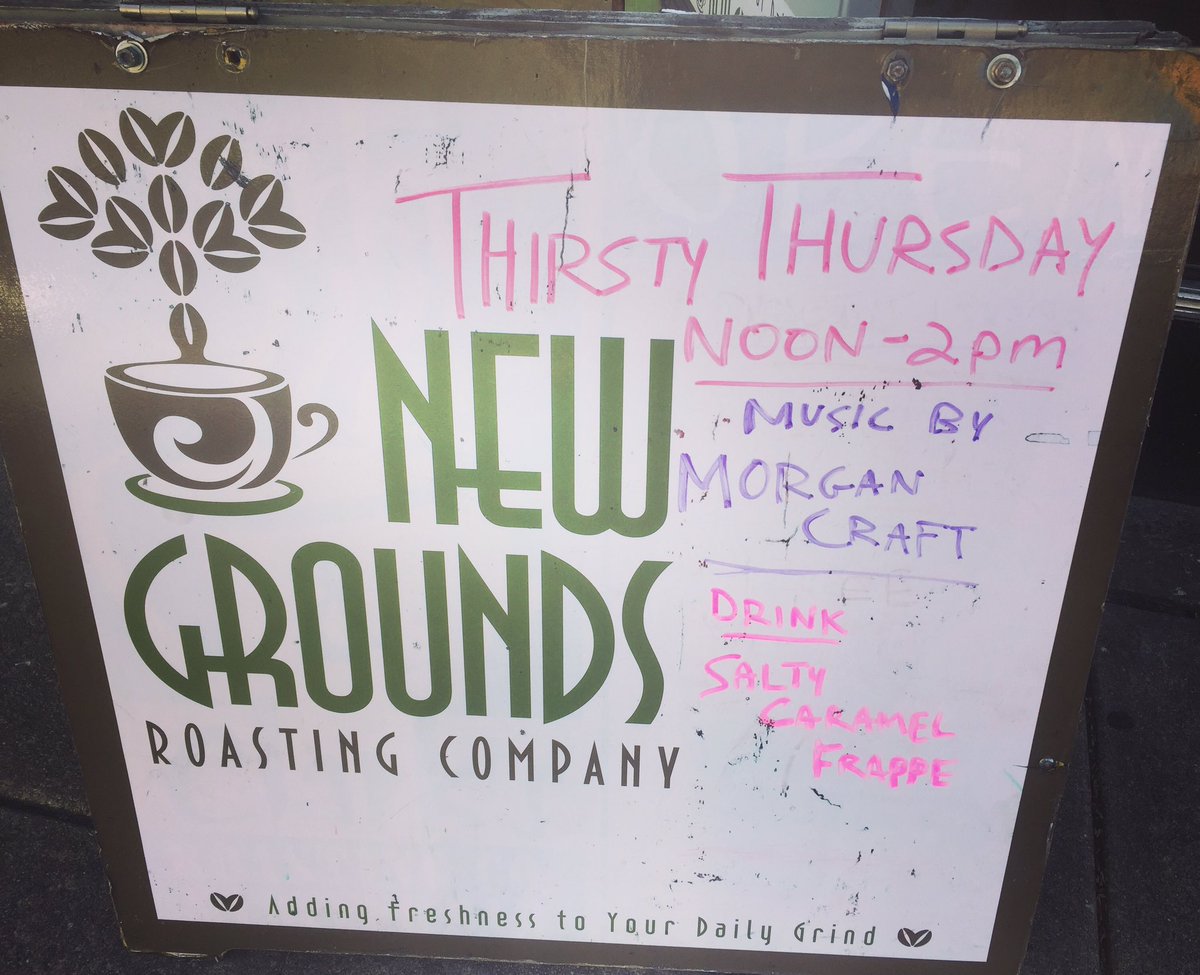 THIRSTY THURSDAY
NOON-2pm
MUSIC BY
MORGAN
CRAFT
DRINK
SALTY
CARAMEL
FRAPPE
NEW
GROUNDS
ROASTING COMPANY
Adding Freshness to Your Daily Grind